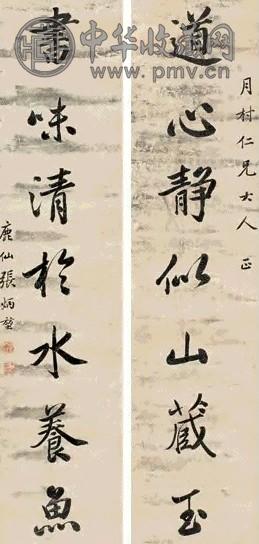 中华收藏网
www.pmv.cn
月村仁兄大人正
道心静似山藏玉
書味清於水養魚
鹿仙張炳堃